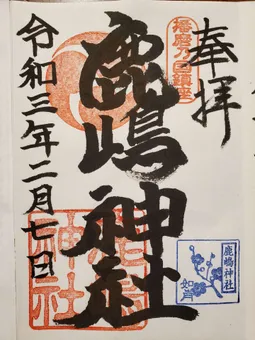 奉拝
播磨乃国鎮座
鹿嶋神社
令和三年二月七日
鹿嶋神社
如月